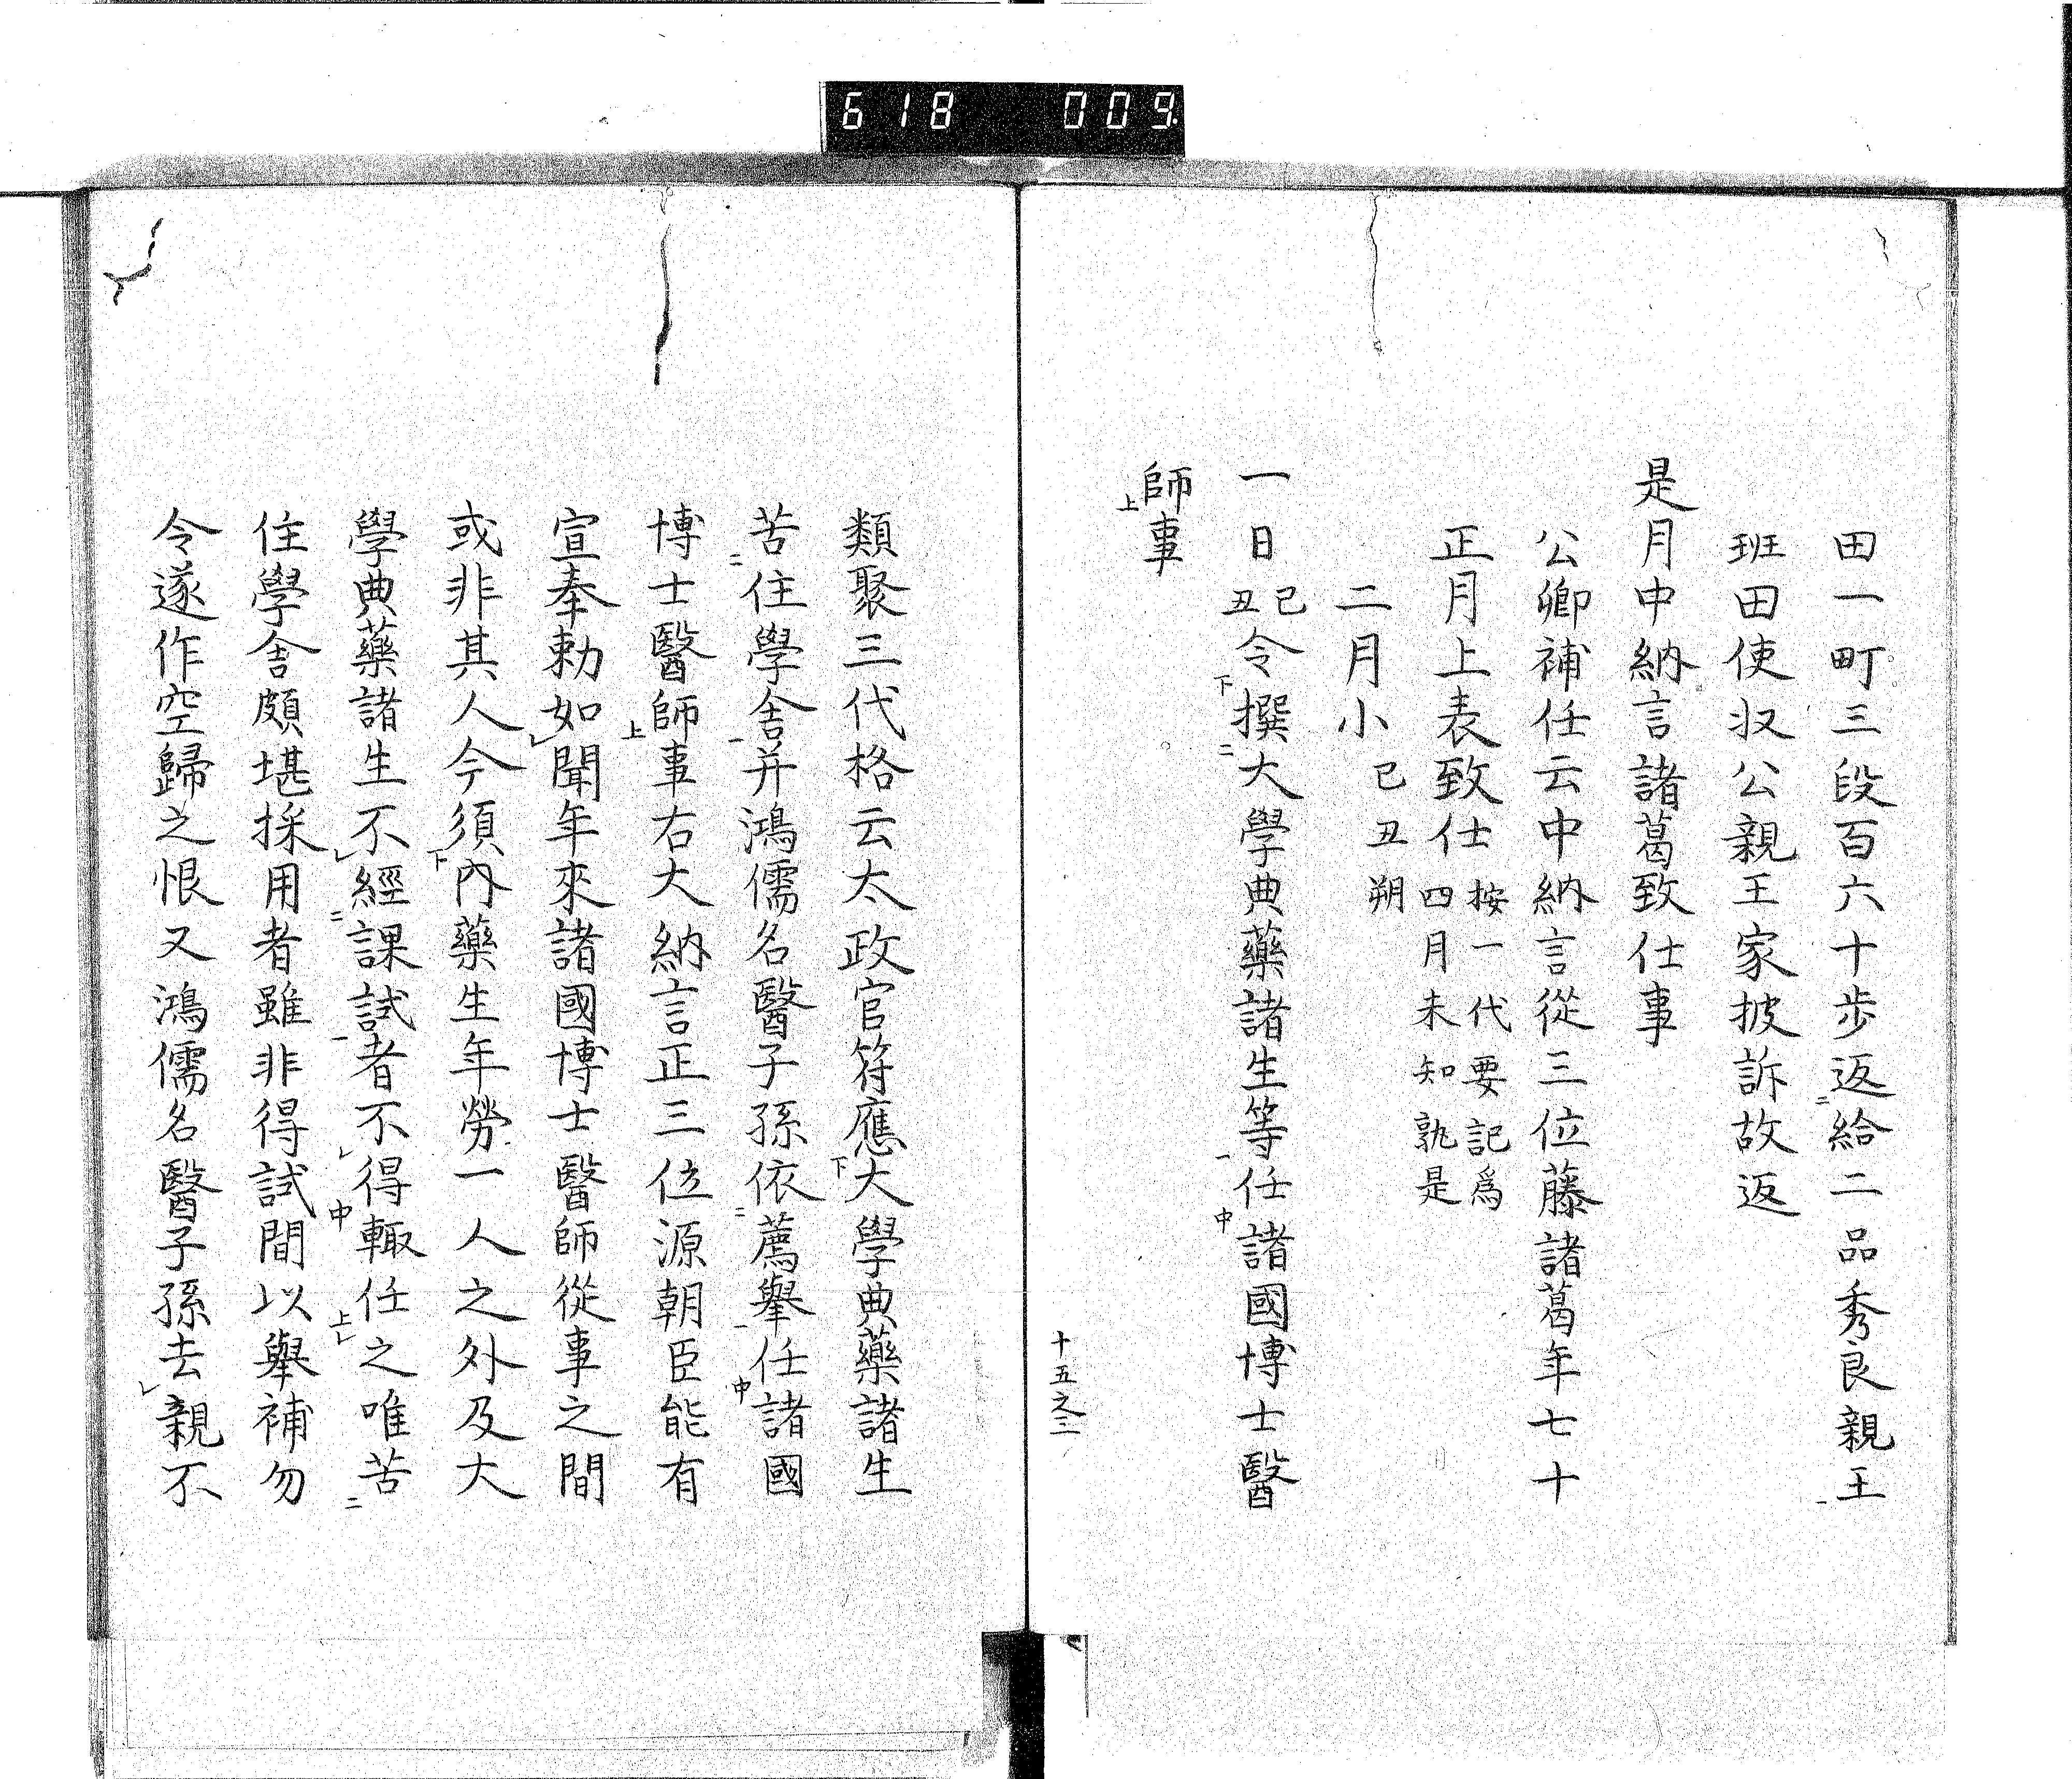 618 009
田一町三段百六十歩返給二品秀良親王
班田使収公親王家披訴故返
是月中納言諸葛致仕事
公卿補任云中納言從三位藤諸葛年七十
正月上表致仕按一代要記爲四月未知孰是
二月小己丑朔
一日己丑令撰大學典藥諸生等任諸國博士醫
師事
十五之三
類聚三代格云太政官符應大學典藥諸生
苦住學舎并鴻儒名醫子孫依薦擧任諸國
博士醫師事右大納言正三位源朝臣能有
宣奉勅如聞年來諸國博士醫師從事之間
或非其人今須內藥生年勞一人之外及大
學典藥諸生不經課試者不得輙任之唯苦
住學舎頗堪採用者雖非得試間以擧補勿
令遂作空歸之恨又鴻儒名醫子孫去親不